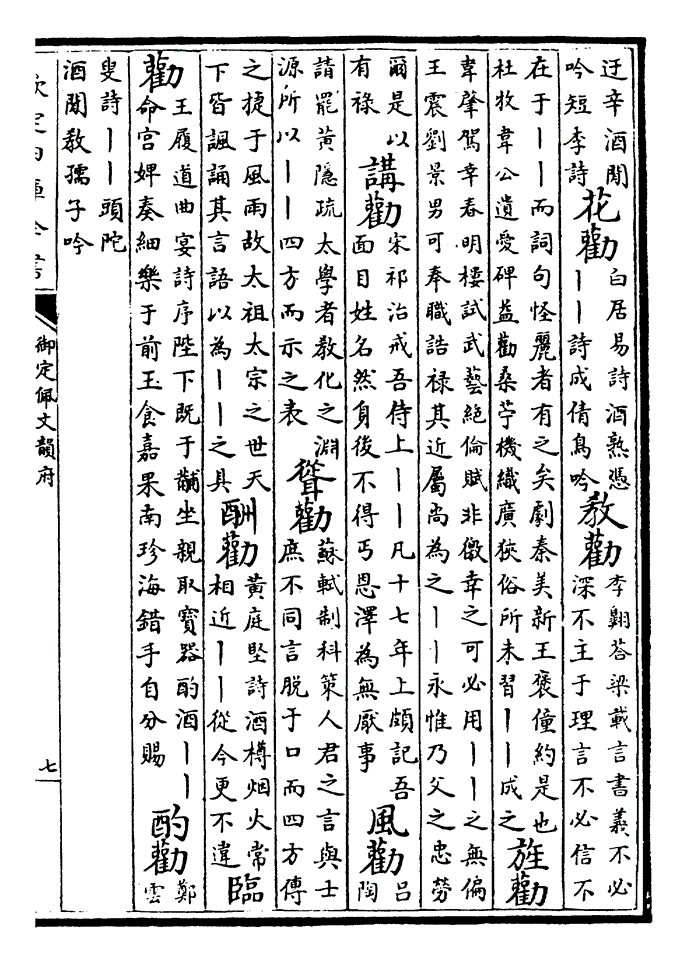 迂辛酒閒
吟短李詩
花勸
白居易詩酒熟憑
丨丨詩成倩鳥吟
教勸
李翺荅梁載言書義不必
深不主于理言不必信不
在于丨丨而詞句怪麗者有之矣劇秦美新王褒僮約是也
杜牧韋公遺愛碑益勸桑苧機織廣狹俗所未習丨丨成之
旌勸
韋肇駕幸春明樓試武藝絕倫賦非徼幸之可必用丨丨之無偏
王震劉景男可奉職誥祿其近屬尚為之丨丨永惟乃父之忠勞
爾是以
有祿
講勸
宋祁治戒吾侍上丨丨凡十七年上頗記吾
面目姓名然身後不得丐恩澤為無厭事
風勸
呂
陶
請罷黃隱疏太學者教化之淵
源所以丨丨四方而示之表
聳勸
蘇軾制科策人君之言與士
庶不同言脫于口而四方傳
之捷于風雨故太祖太宗之世天
下皆諷誦其言語以為丨丨之具
酬勸
黃庭堅詩酒樽烟火常
相近丨丨從今更不違
臨
勸
王履道曲宴詩序陛下既于黼坐親取寶器酌酒丨丨
命宮婢奏細樂于前玉食嘉果南珍海錯手自分賜
酌勸
鄭
雲
叟詩丨丨頭陀
酒閒教孺子吟
欽定四庫全書
御定佩文韻府
七